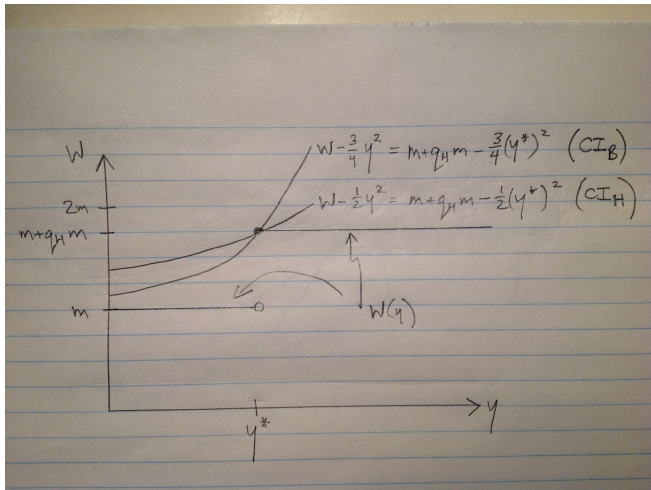 W
W - 3/4 y² = m+q_H m - 3/4 (y*)² (CI_B)
W - 1/2 y² = m+q_H m - 1/2 (y*)² (CI_H)
2m
m+q_H m
m
W(y)
y
y*